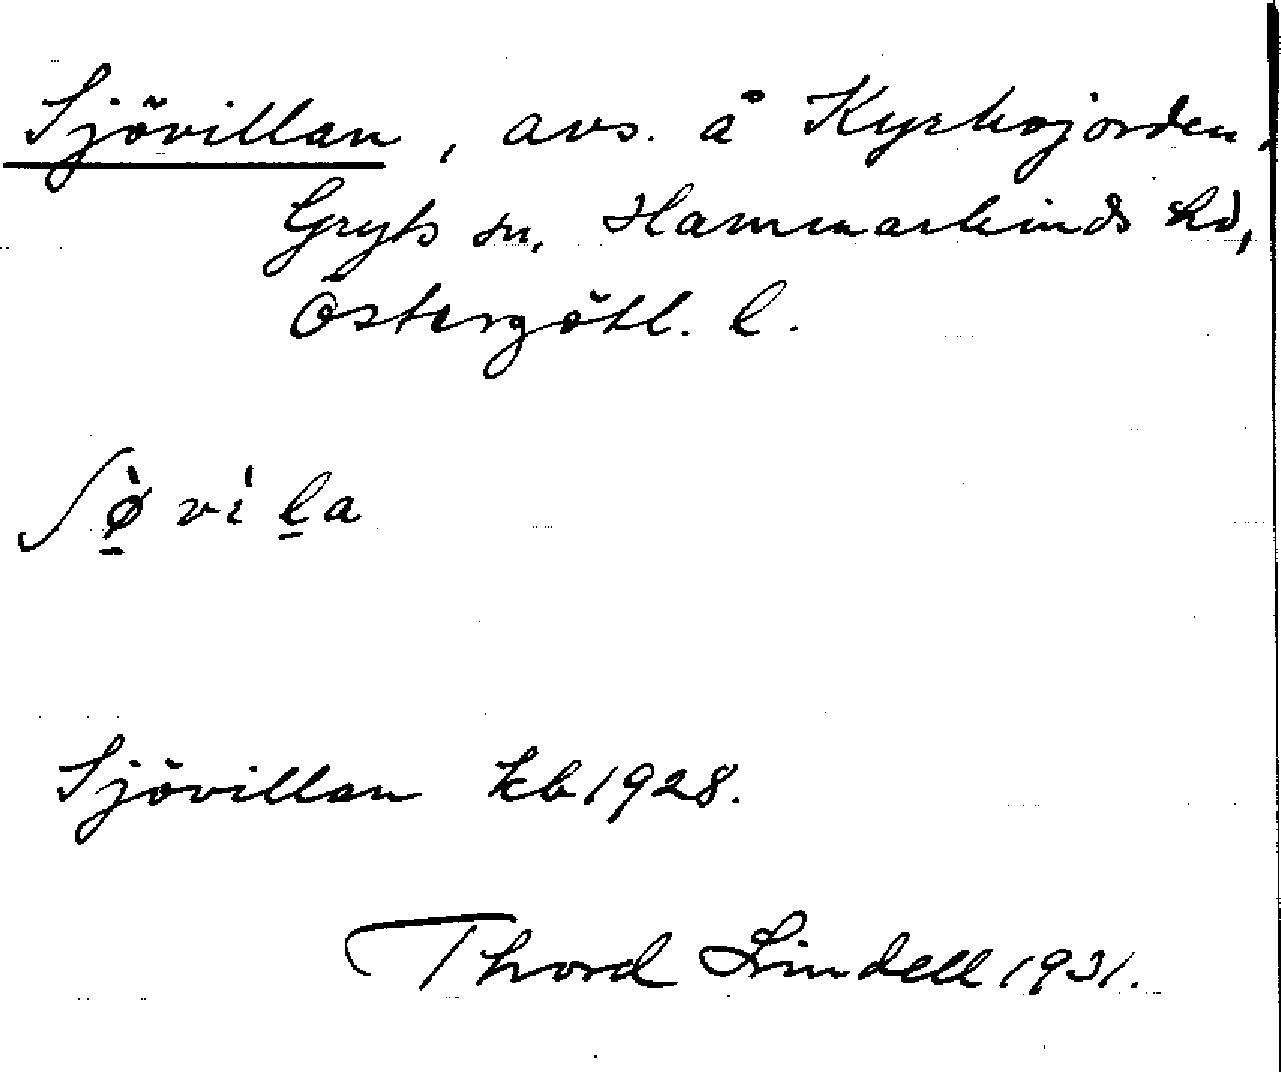 Sjövillan, avs. å Kyrkojorden,
Gryts sn, Hammarkinds hd,
Östergötl. l.
ʃø̀vìla
Sjövillan kb 1928.
Thord Lindell 1931.